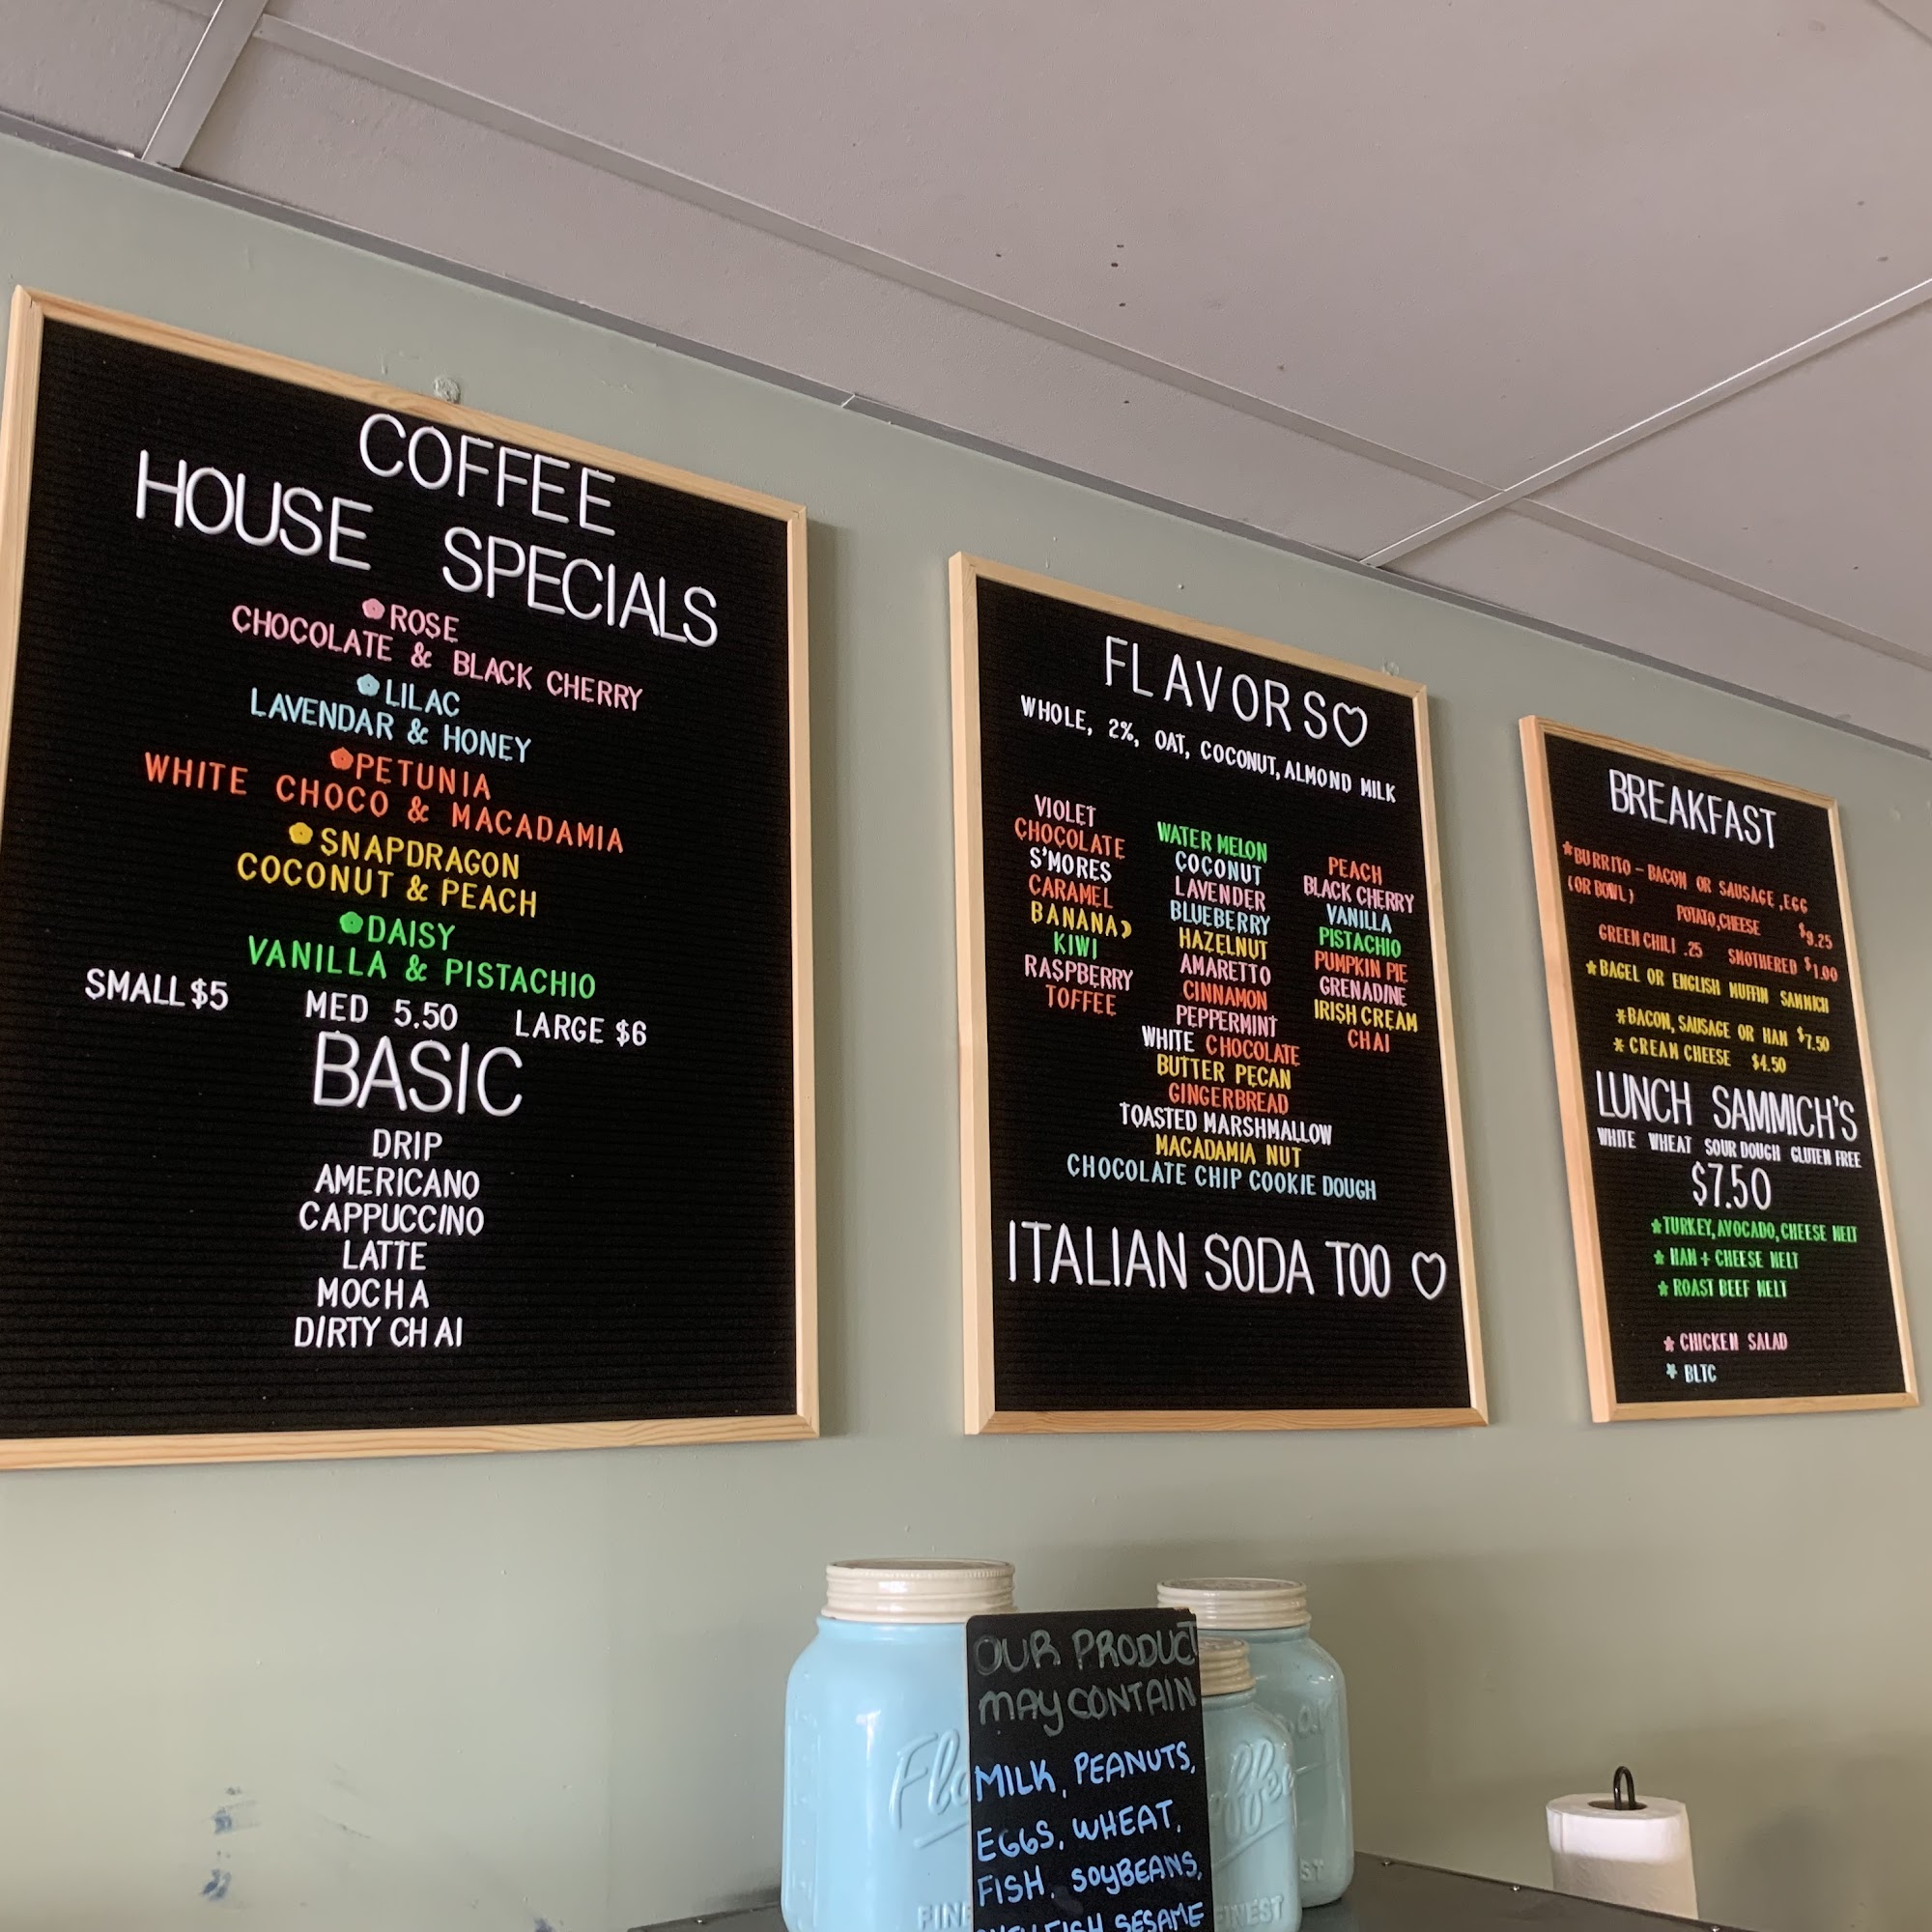 COFFEE
HOUSE SPECIALS
ROSE
CHOCOLATE & BLACK CHERRY
LILAC
LAVENDAR & HONEY
PETUNIA
WHITE CHOCO & MACADAMIA
SNAPDRAGON
COCONUT & PEACH
DAISY
VANILLA & PISTACHIO
SMALL $5 MED 5.50 LARGE $6
BASIC
DRIP
AMERICANO
CAPPUCCINO
LATTE
MOCHA
DIRTY CHAI
FLAVORS♡
WHOLE, 2%, OAT, COCONUT, ALMOND MILK
VIOLET
CHOCOLATE
S'MORES
CARAMEL
BANANA
KIWI
RASPBERRY
TOFFEE
WATER MELON
COCONUT
LAVENDER
BLUEBERRY
HAZELNUT
AMARETTO
CINNAMON
PEPPERMINT
PEACH
BLACK CHERRY
VANILLA
PISTACHIO
PUMPKIN PIE
GRENADINE
IRISH CREAM
CHAI
WHITE CHOCOLATE
BUTTER PECAN
GINGERBREAD
TOASTED MARSHMALLOW
MACADAMIA NUT
CHOCOLATE CHIP COOKIE DOUGH
ITALIAN SODA TOO ♡
BREAKFAST
*BURRITO - BACON OR SAUSAGE, EGG
(OR BOWL) POTATO, CHEESE $9.25
GREEN CHILI .25 SMOTHERED $1.00
*BAGEL OR ENGLISH MUFFIN SAMMICH
*BACON, SAUSAGE OR HAM $7.50
* CREAM CHEESE $4.50
LUNCH SAMMICH'S
WHITE WHEAT SOUR DOUGH GLUTEN FREE
$7.50
*TURKEY, AVOCADO, CHEESE MELT
* HAM + CHEESE MELT
* ROAST BEEF MELT
* CHICKEN SALAD
* BLTC
OUR PRODUCT
MAY CONTAIN
MILK, PEANUTS,
EGGS, WHEAT,
FISH, SOYBEANS,
SESAME